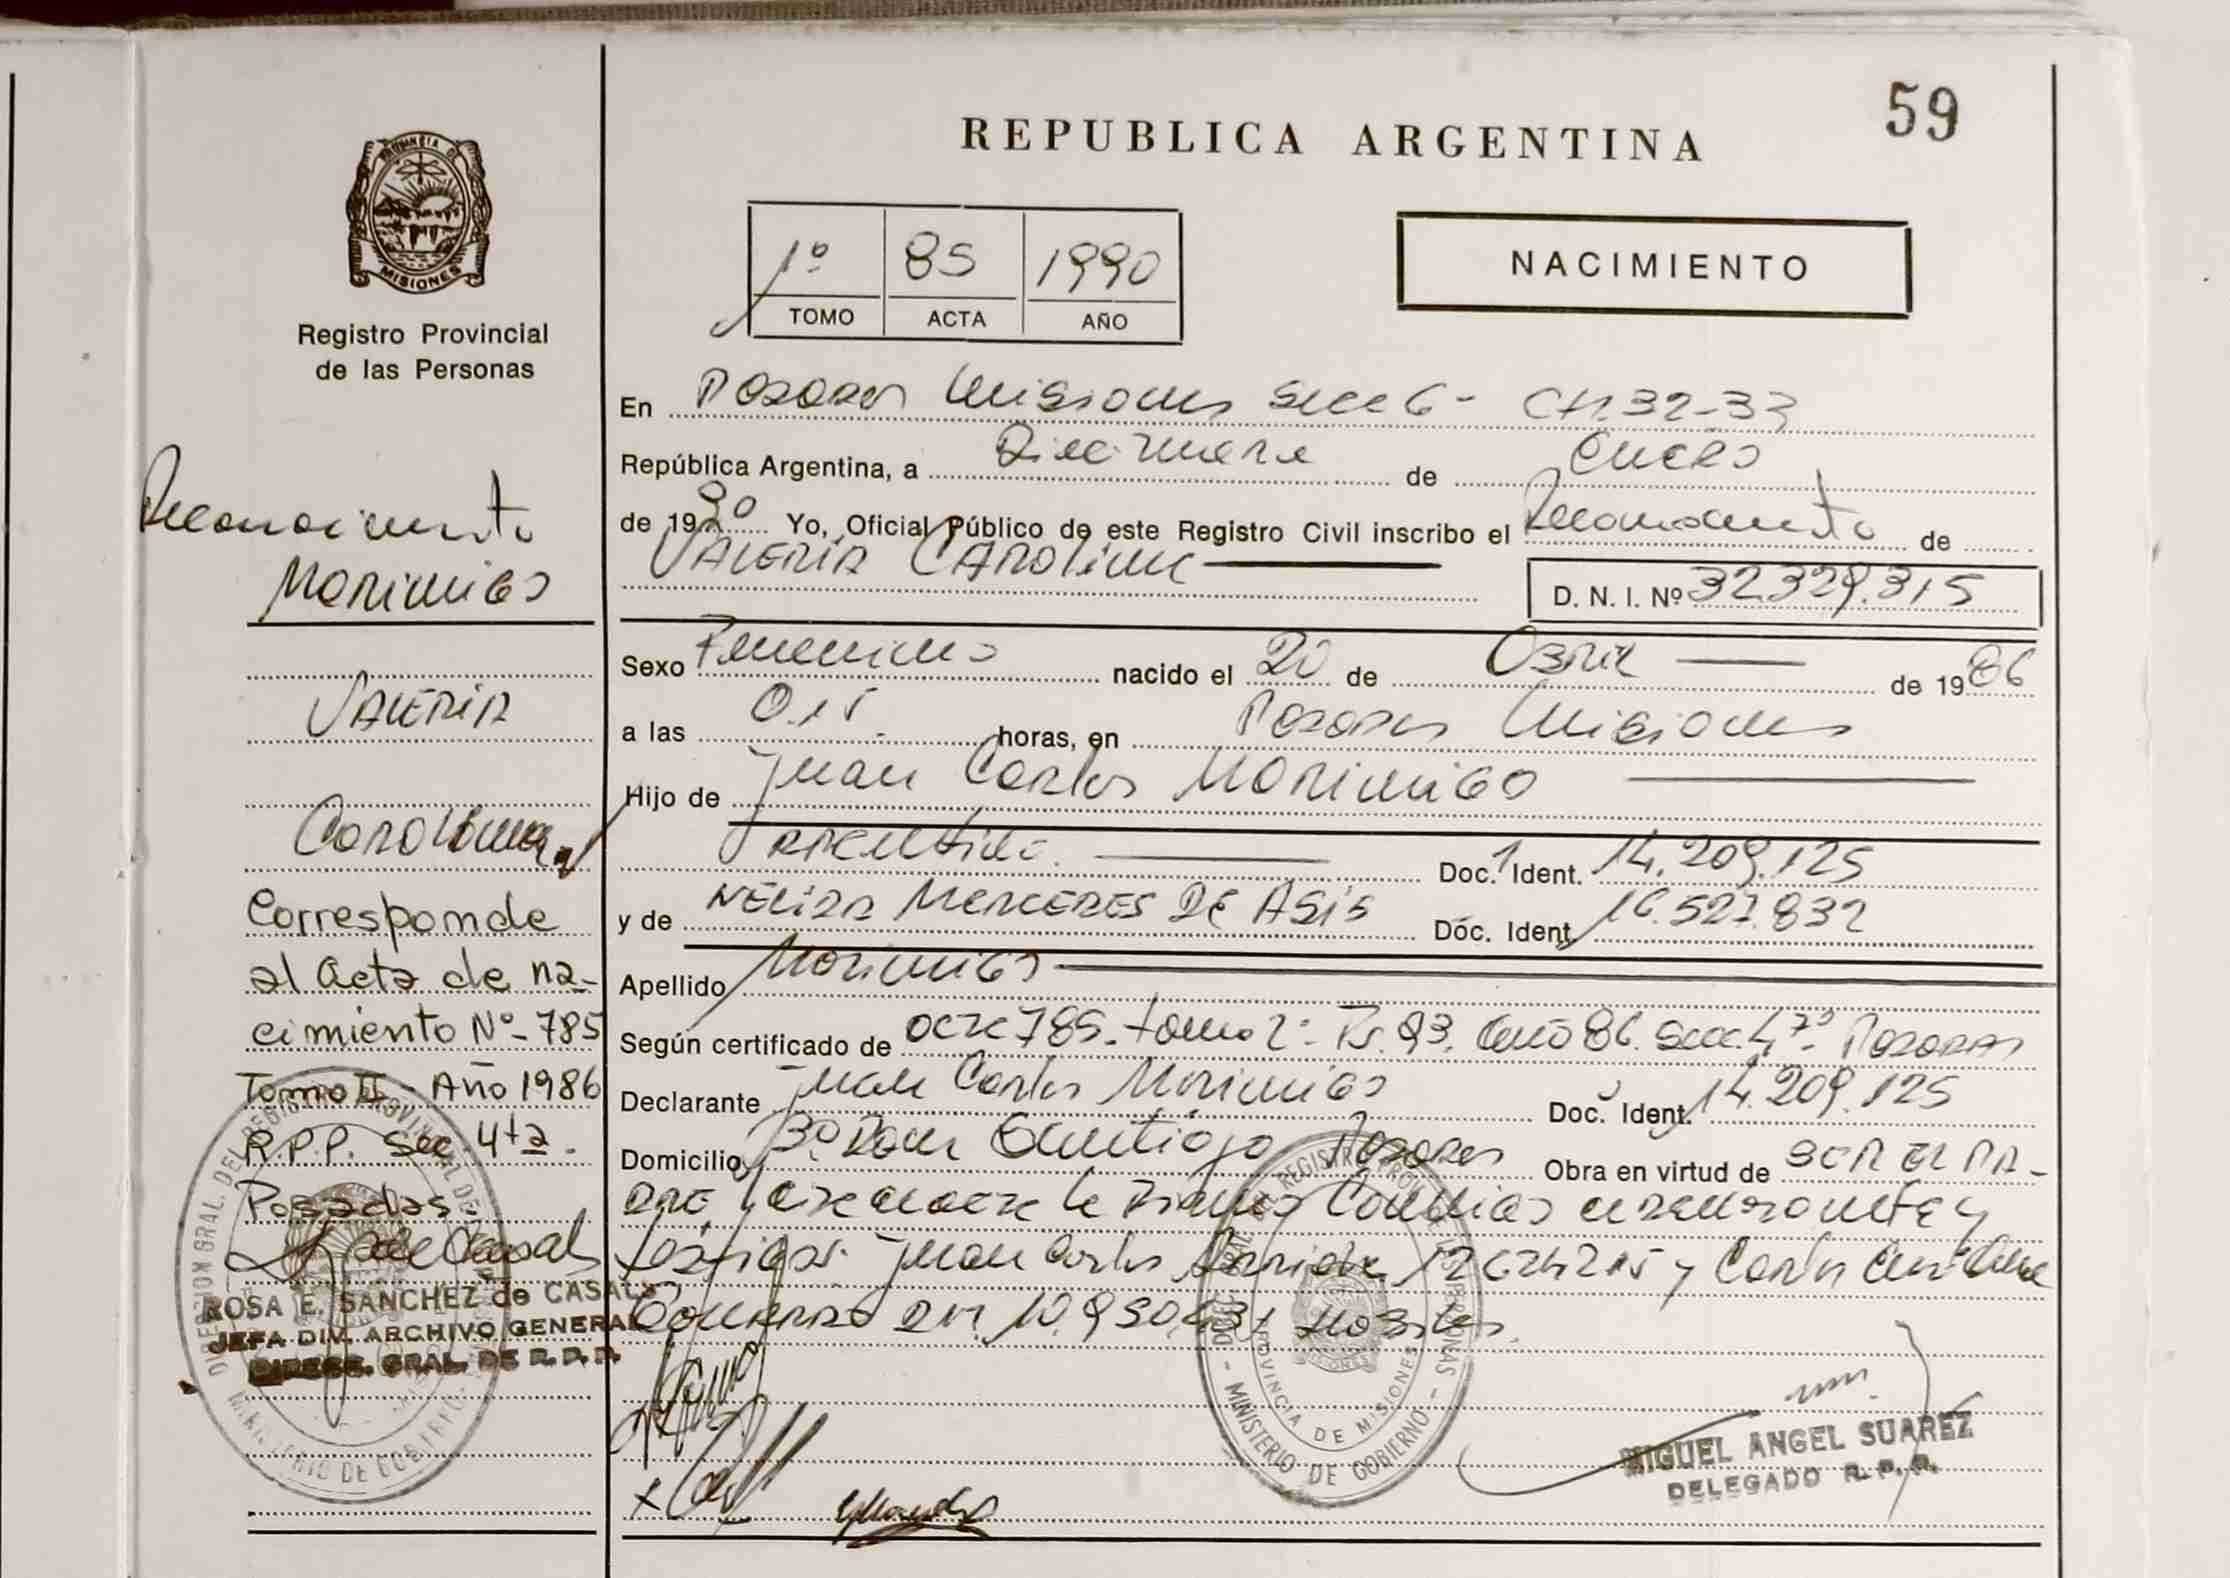 59
REPUBLICA ARGENTINA
PROVINCIA DE
MISIONES
Registro Provincial
de las Personas
1º 85 1990
TOMO ACTA AÑO
NACIMIENTO
Reconocimiento
Morinigo
Valeria
Carolina
Corresponde
al Acta de na-
cimiento Nº- 785
Tomo II - Año 1986
R.P.P. Sec. 4ta.
Posadas
ROSA E. SANCHEZ de CASALS
JEFA DIV. ARCHIVO GENERAL
DIRECC. GRAL. DE R.P.P.
En Posadas Misiones Secc 6 - CH. 32-33
República Argentina, a Diecinueve de Enero
de 1990 Yo, Oficial Público de este Registro Civil inscribo el Reconocimiento de
Valeria Carolina
D. N. I. Nº 32.329.315
Sexo Femenino nacido el 20 de Abril de 1986
a las 0.15 horas, en Posadas Misiones
Hijo de Juan Carlos Morinigo
Argentino. Doc. Ident. 14.209.125
y de Nelida Mercedes de Asis Doc. Ident. 16.527.832
Apellido Morinigo
Según certificado de acta 785. tomo 2º Fs. 93. año 86. Secc 4ta Posadas
Declarante Juan Carlos Morinigo Doc. Ident. 14.209.125
Domicilio Bº Posadas Obra en virtud de ser el pa-
dre
testigos. Juan Carlos y Carlos
DIRECCION GRAL. DEL REGISTRO PROVINCIAL DE LAS PERSONAS
PROVINCIA DE MISIONES
- MINISTERIO DE GOBIERNO -
MIGUEL ANGEL SUAREZ
DELEGADO R. P. P.